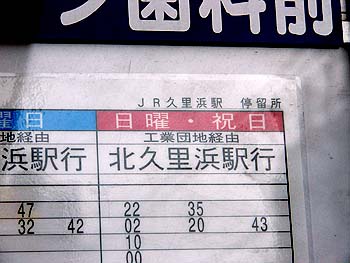 歯科前
JR久里浜駅 停留所
曜日 日曜・祝日
地経由 工業団地経由
浜駅行 北久里浜駅行
47 22 35
32 42 02 20 43
10
00